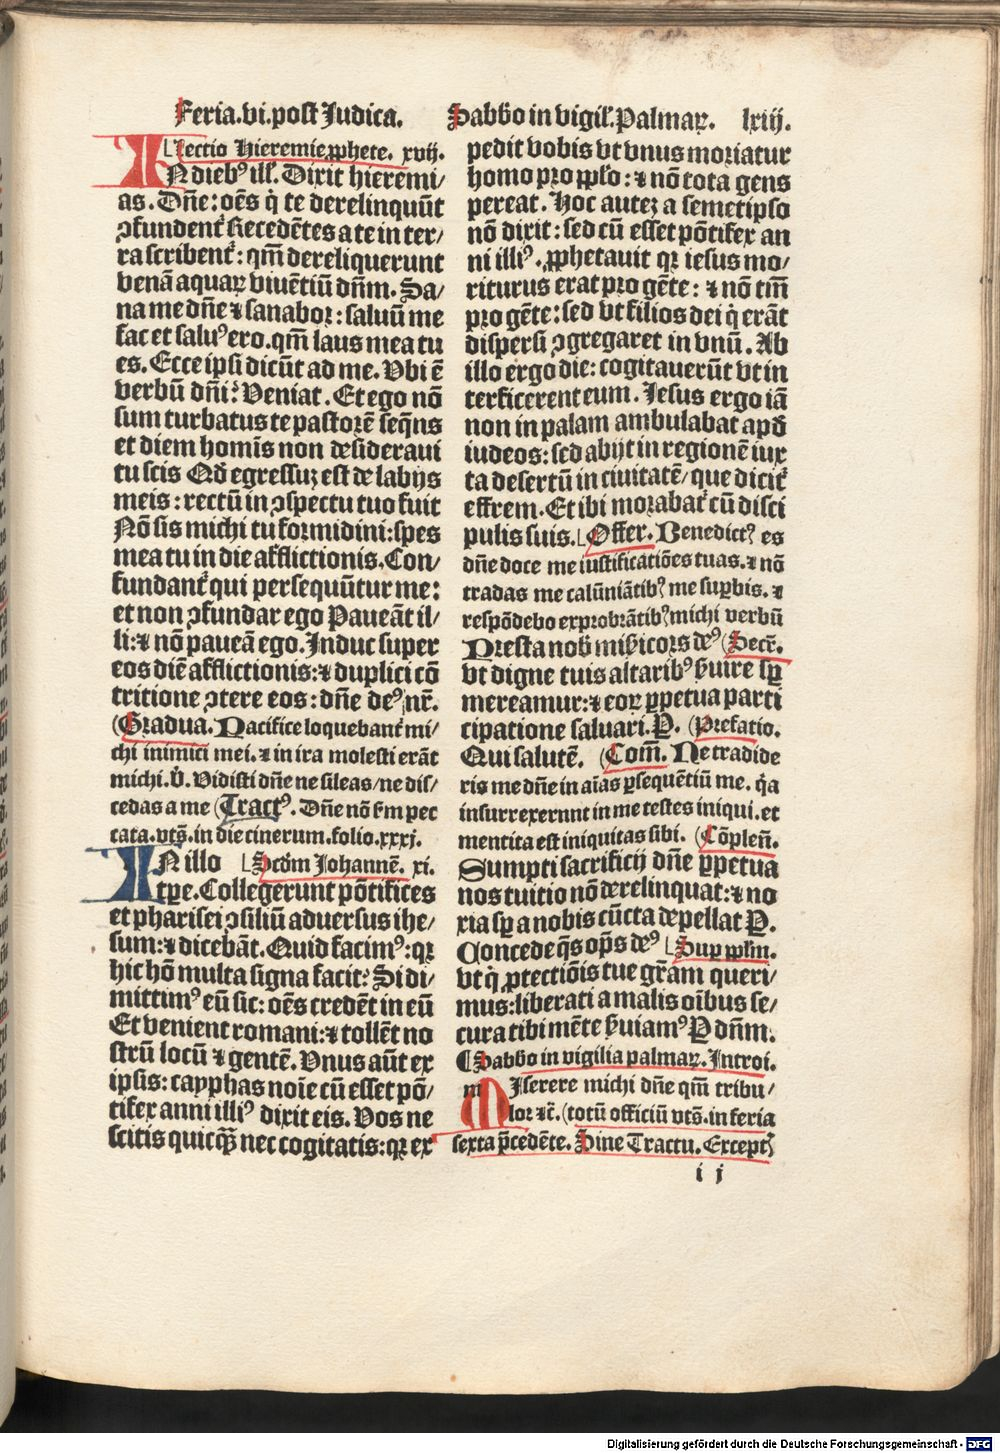 Feria.vi.post Judica. Sabbo in vigil'.Palmaꝝ. lxiij.
Lectio Hieremie ꝓphete. xvij.
IN diebꝰ ill'. Dixit hieremi/
as. Dn̄e: oēs q̇ te derelinquūt
ↄfundent᷑ Recedētes a te in ter/
ra scribent᷑: qm̄ dereliquerunt
venā aquaꝝ viuētiū dn̄m. Sa/
na me dn̄e ⁊ sanabor: saluū me
fac et saluꝰ ero. qm̄ laus mea tu
es. Ecce ipsi dicūt ad me. Vbi ē
verbū dn̄i? Veniat. Et ego nō
sum turbatus te pastorē seq̄ns
et diem homīs non desideraui
tu scis Qd̄ egressuꝫ est de labijs
meis: rectū in ↄspectu tuo fuit
Nō sis michi tu formidini: spes
mea tu in die afflictionis. Con/
fundant᷑ qui persequūtur me:
et non ↄfundar ego Paueāt il/
li: ⁊ nō paueā ego. Induc super
eos diē afflictionis: ⁊ duplici cō
tritione ↄtere eos: dn̄e deꝰ nr̄.
(Gradua. Pacifice loquebant᷑ mi/
chi inimici mei. ⁊ in ira molesti erāt
michi. V̄. Vidisti dn̄e ne sileas/ne dis/
cedas a me (Tractꝰ. Dn̄e nō s̄m pec
cata. vts̄. in die cinerum. folio. xxxj.
IN illo Scd̄m Johannē. xi.
tꝑe. Collegerunt pōtifices
et pharisei ↄsiliū aduersus ihe/
sum: ⁊ dicebāt. Quid facimꝰ: qꝛ
hic hō multa signa facit? Si di/
mittimꝰ eū sic: oēs credēt in eū
Et venient romani: ⁊ tollēt no
strū locū ⁊ gentē. Vnus aūt ex
ipsis: cayphas noīe cū esset pō/
tifex anni illiꝰ dixit eis. Vos ne
scitis quicqꝫ nec cogitatis: qꝛ ex
pedit vobis vt vnus moriatur
homo pro pplo: ⁊ nō tota gens
pereat. Hoc auteꝫ a semetipso
nō dixit: sed cū esset pōtifex an
ni illiꝰ. ꝓphetauit qꝛ iesus mo/
riturus erat pro gēte: ⁊ nō tm̄
pro gēte: sed vt filios dei q̇ erāt
dispersi ↄgregaret in vnū. Ab
illo ergo die: cogitauerūt vt in
terficerent eum. Iesus ergo iā
non in palam ambulabat apd̄
iudeos: sed abijt in regionē iux
ta desertū in ciuitatē/que dicit᷑
effrem. Et ibi morabat᷑ cū disci
pulis suis. Offer. Benedictꝰ es
dn̄e doce me iustificatiōes tuas. ⁊ nō
tradas me calūniātibꝰ me suꝑbis. ⁊
respōdebo exprobrātibꝰ michi verbū
Presta nob̄ mis̄icors deꝰ (Secr̄.
vt digne tuis altaribꝰ ẜuire sp̄
mereamur: ⁊ eoꝝ ꝑpetua parti
cipatione saluari. P. (Prefatio.
Qui salutē. (Com̄. Ne tradide
ris me dn̄e in aīas ꝑsequētiū me. q̇a
insurrexerunt in me testes iniqui. et
mentita est iniquitas sibi. (Cōplen̄.
Sumpti sacrificij dn̄e ꝑpetua
nos tuitio nō derelinquat: ⁊ no
xia sꝑ a nobis cūcta depellat P.
Concede q̄s op̄s deꝰ Suꝑ pplm̄.
vt q̇ ꝓtectiōis tue gr̄am queri/
mus: liberati a malis oībus se/
cura tibi mēte ẜuiamꝰ P dn̄m.
¶ Sabbo in vigilia palmaꝝ. Introi.
MIserere michi dn̄e qm̄ tribu/
lor ⁊c̄. (totū officiū vts̄. in feria
sexta p̄cedēte. Sine Tractu. Exceptꝭ
i j
Digitalisierung gefördert durch die Deutsche Forschungsgemeinschaft - DFG